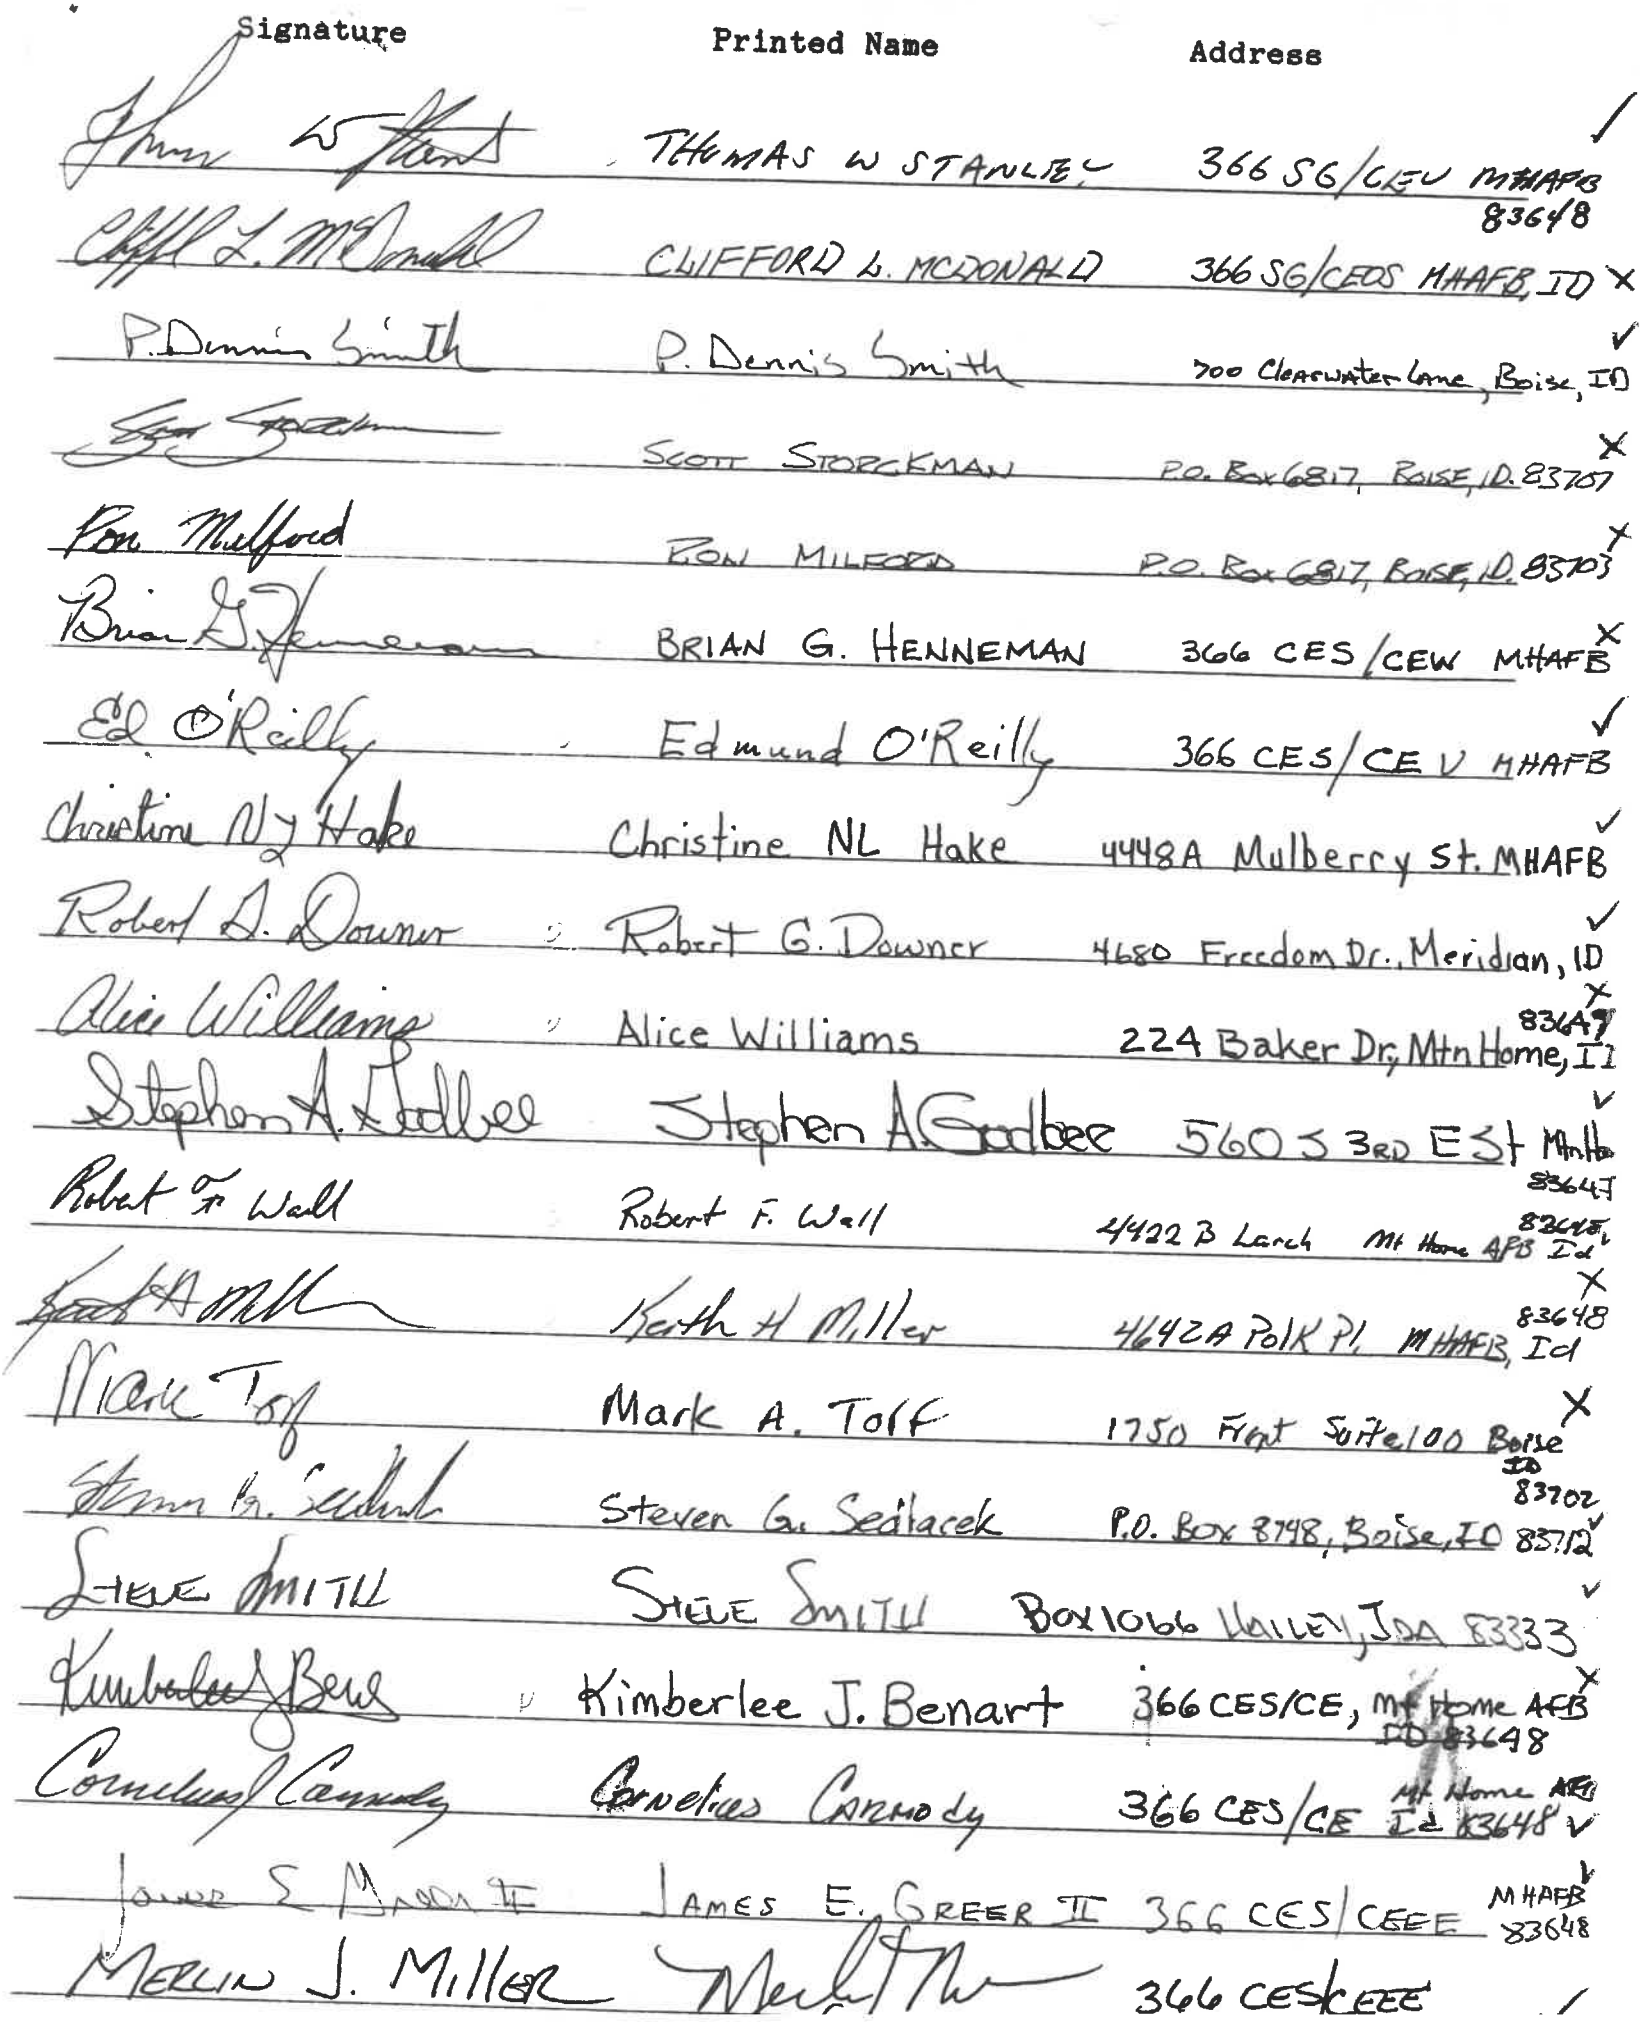 Signature Printed Name Address
THOMAS W STANLEY 366 SG/CEV MHAFB
83648
Cliff L. McDonald CLIFFORD L. MCDONALD 366 SG/CEOS MHAFB, ID X
✓
P. Dennis Smith P. Dennis Smith 700 Clearwater Lane, Boise, ID
X
SCOTT STORCKMAN P.O. Box 6817, BOISE, ID. 83707
X
Ron Milford RON MILFORD P.O. Box 6817, BOISE, ID. 83703
X
Brian G. Henneman BRIAN G. HENNEMAN 366 CES/CEW MHAFB
✓
Ed O'Reilly Edmund O'Reilly 366 CES/CEV MHAFB
✓
Christine NL Hake Christine NL Hake 4448A Mulberry St. MHAFB
✓
Robert G. Downer Robert G. Downer 4680 Freedom Dr., Meridian, ID
X
83647
Alice Williams Alice Williams 224 Baker Dr, Mtn Home, ID
✓
Stephen A. Godbee Stephen A. Godbee 560 S 3RD E St Mtn Ho
83647
Robert F Wall Robert F. Wall 4422 B Larch Mt Home AFB Id
X
83648
Keith H Miller Keith H Miller 4642A Polk Pl. MHAFB, Id
X
Mark Torf Mark A. Torf 1750 Front Suite 100 Boise
ID
83702
Steven G. Sedlacek P.O. Box 8748, Boise, ID 83712
✓
STEVE SMITH STEVE SMITH Box 1066 HAILEY, IDA 83333
X
Kimberlee J. Benart 366 CES/CE, Mt Home AFB
ID 83648
Mt Home AFB
Cornelius Carmody Cornelius Carmody 366 CES/CE Id 83648 ✓
✓
MHAFB
JAMES E. GREER II 366 CES/CEEE
83648
MERLIN J. MILLER 366 CES/CEEE